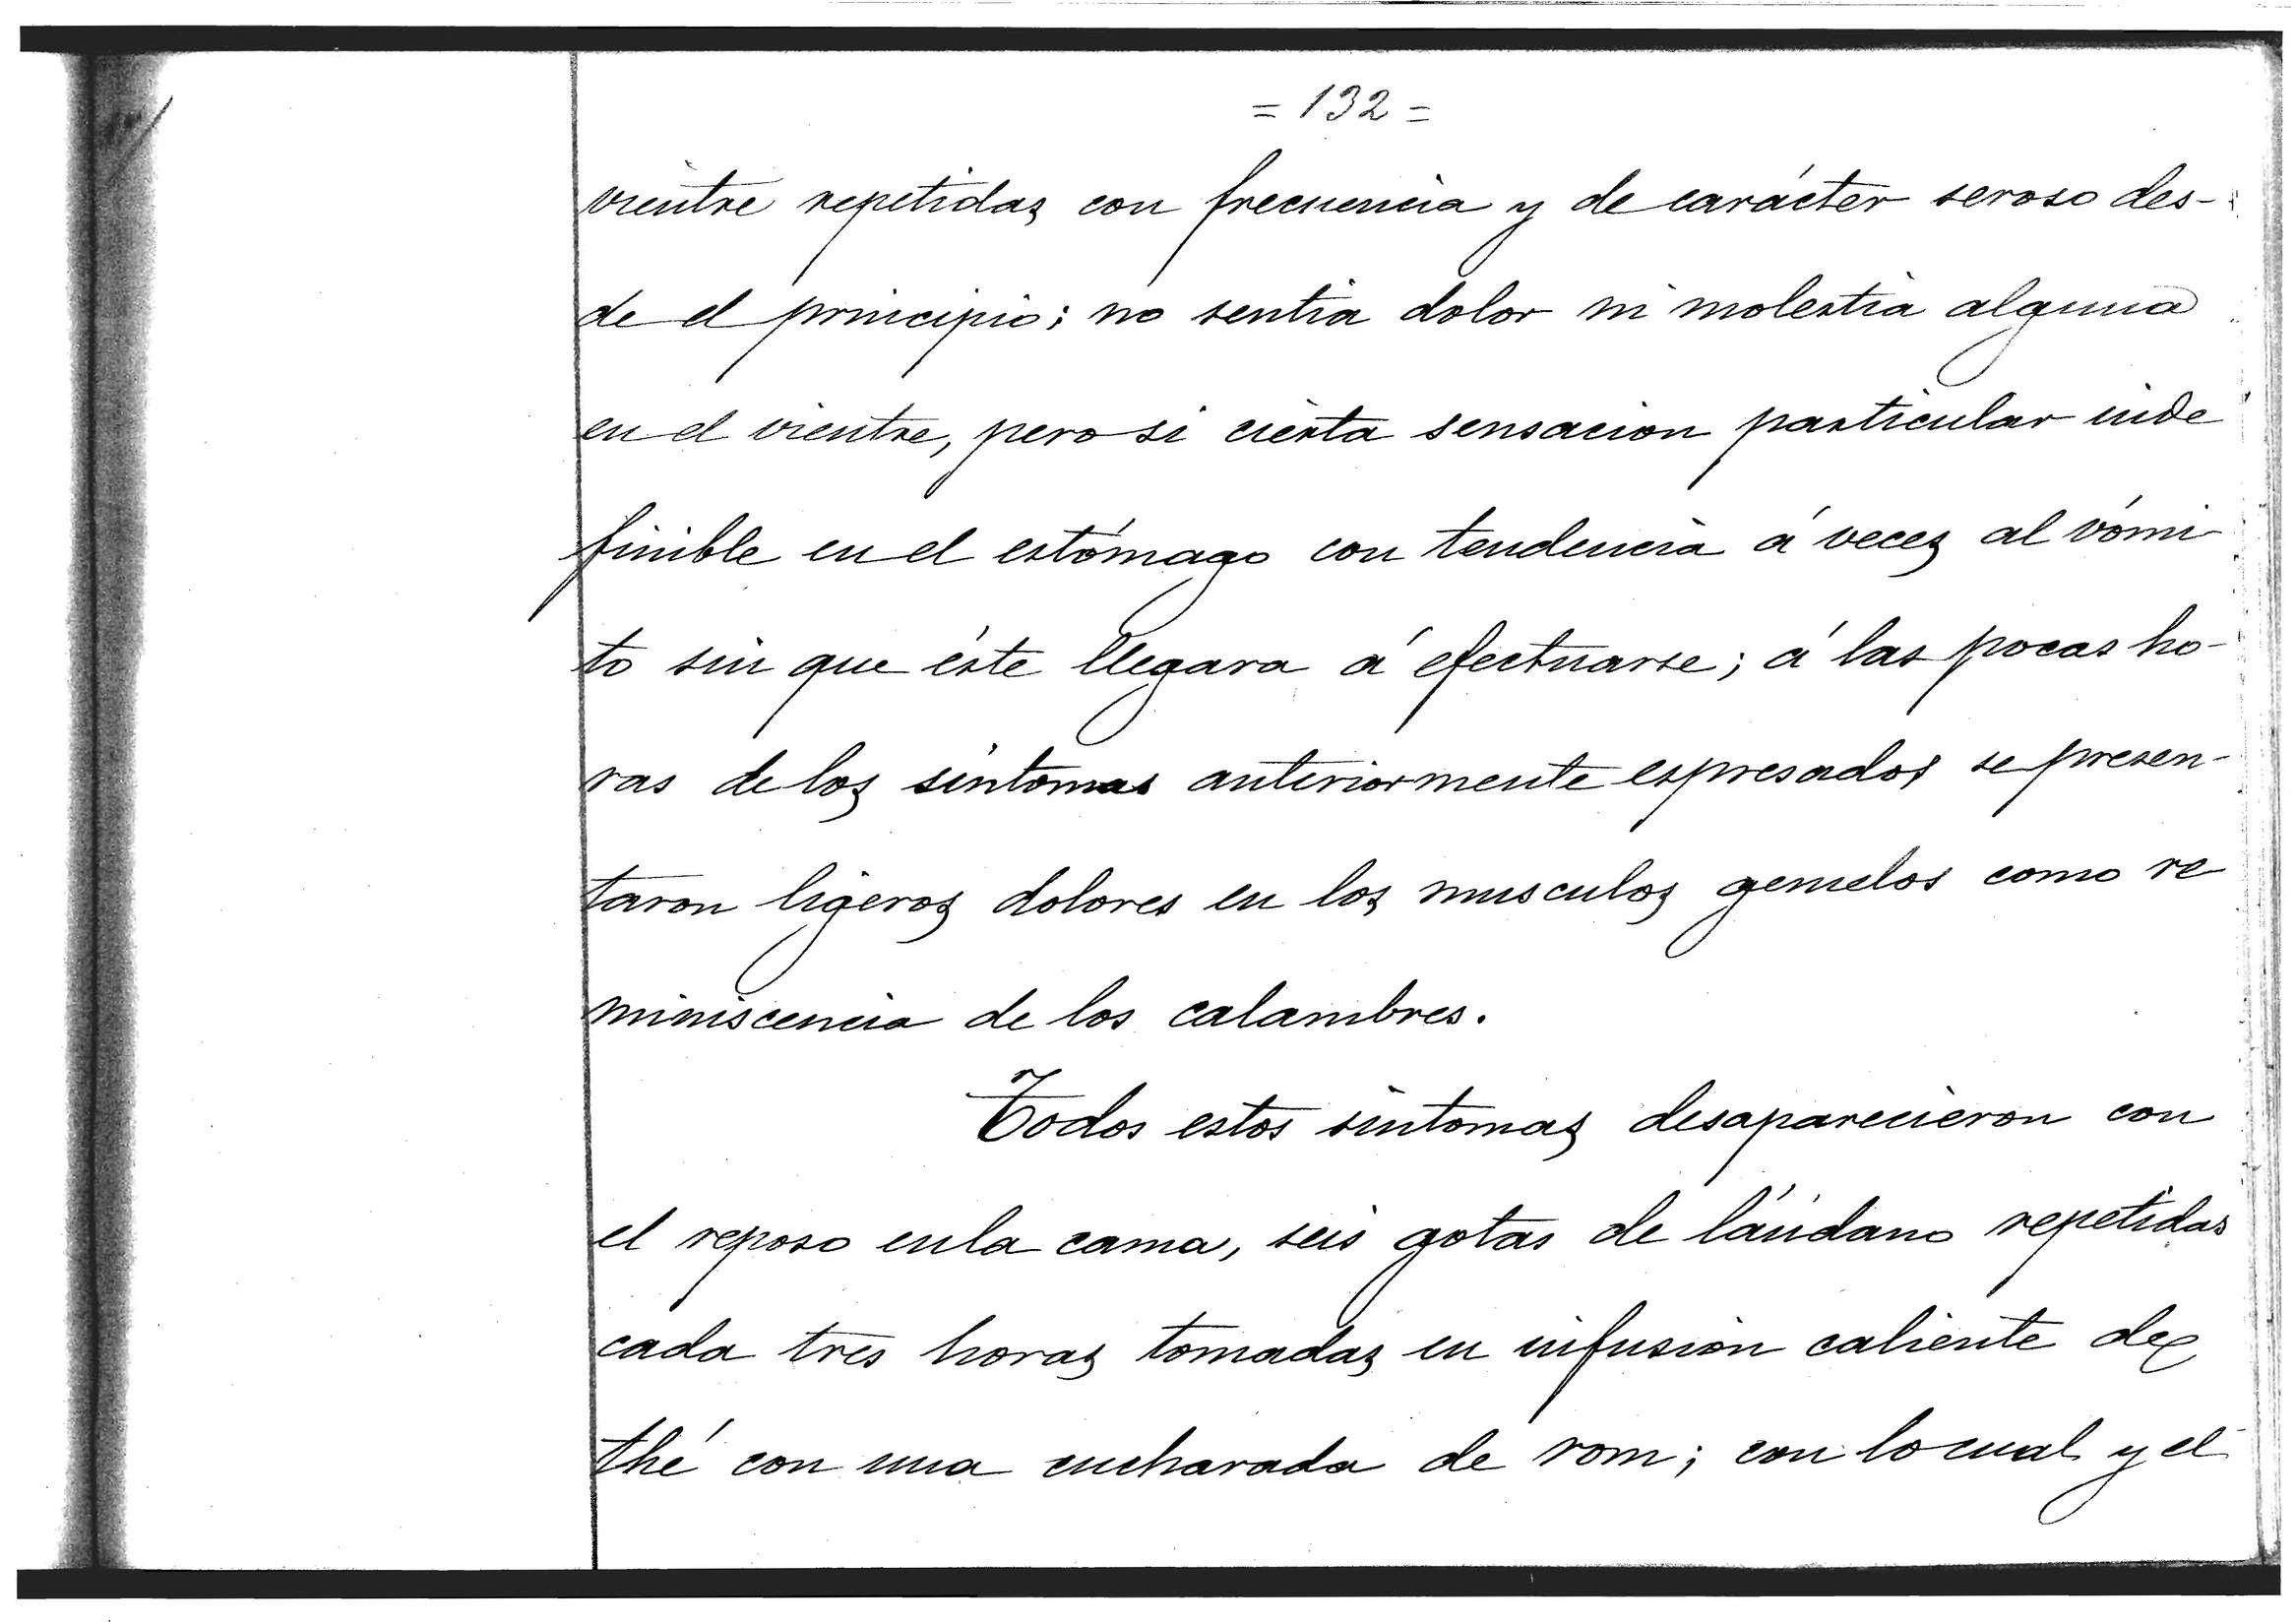 = 132 =
vientre repetidas con frecuencia y de carácter seroso des-
de el principio; no sentia dolor ni molestia alguna
en el vientre, pero si cierta sensacion particular inde
finible en el estómago con tendencia á veces al vómi-
to sin que éste llegara á efectuarse; á las pocas ho-
ras de los síntomas anteriormente espresados se presen-
taron ligeros dolores en los musculos gemelos como re
miniscencia de los calambres.
Todos estos síntomas desaparecieron con
el reposo en la cama, seis gotas de láudano repetidas
cada tres horas tomadas en infusión caliente de
thé con una cucharada de rom; con lo cual y el